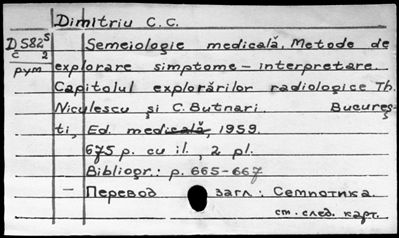 Dimitriu C.C.
D582s Semeiologie medicală. Metode de
c 2
рум explorare simptome – interpretare
Capitolul explorărilor radiologice Th.
Niculescu şi C. Butnari. Bucureş-
ti, Ed. medicală, 1959.
675 p. cu il., 2 pl.
Bibliogr.: p. 665-667
– Перевод загл: Семиотика
ст. след. карт.